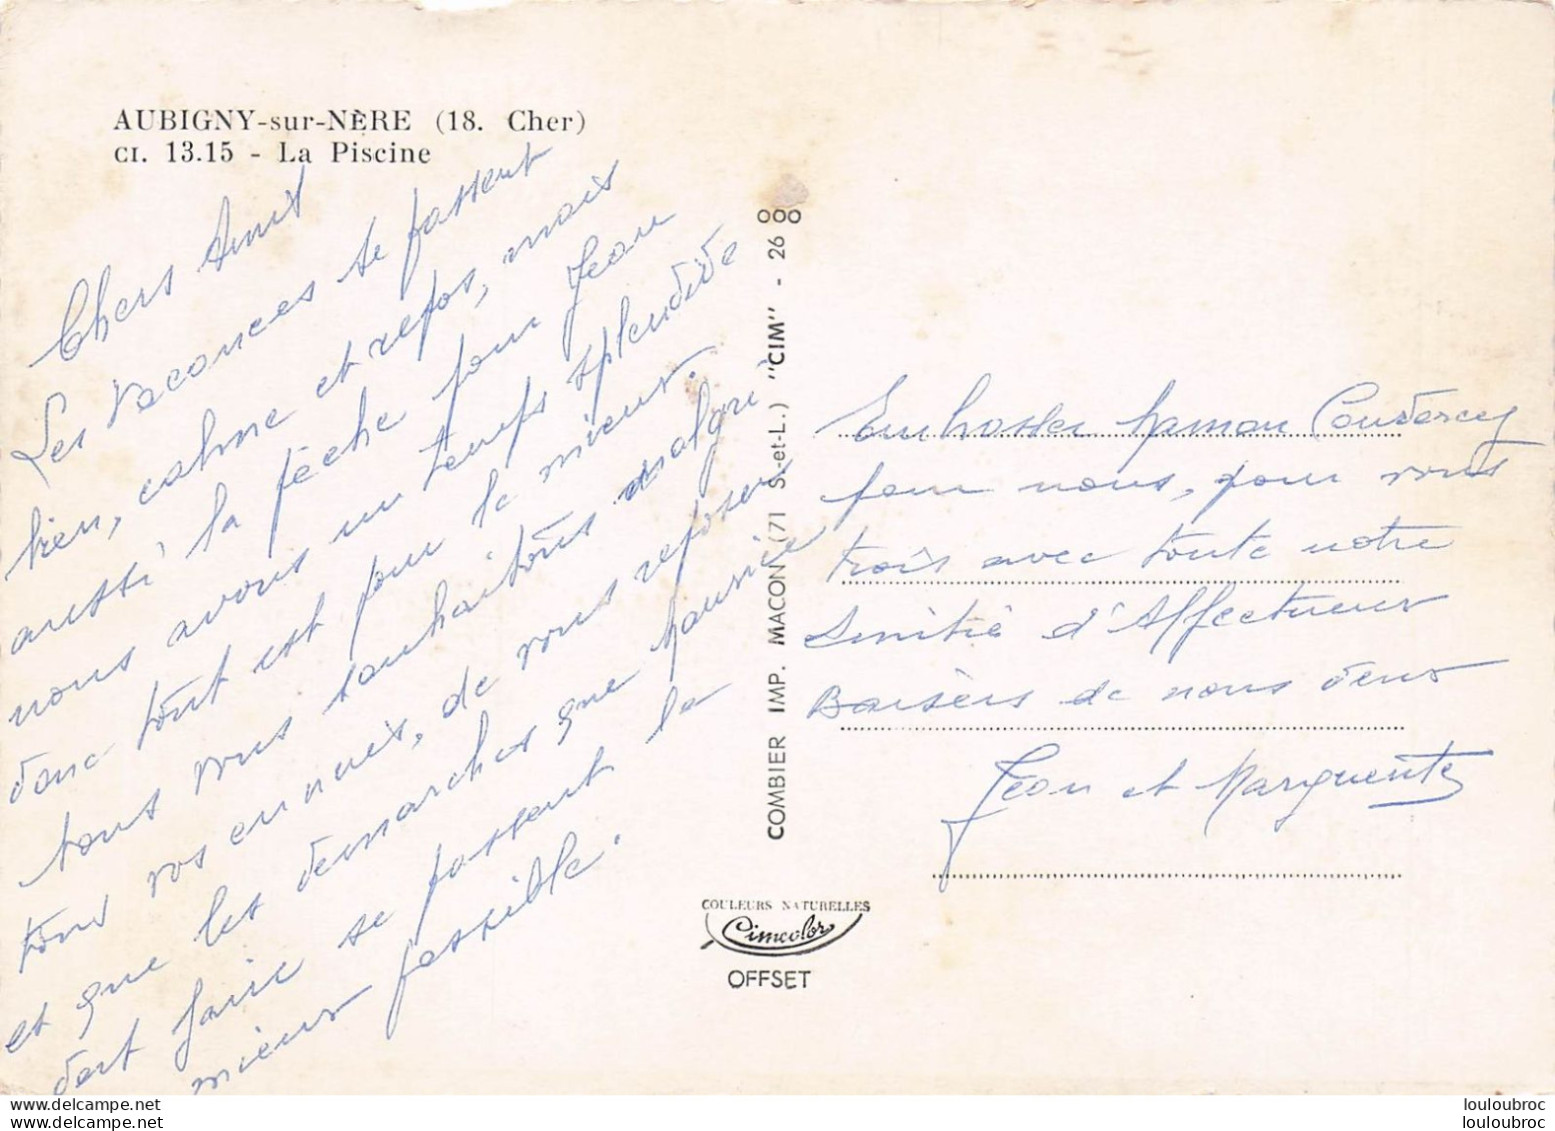 AUBIGNY-sur-NÈRE (18. Cher)
CI. 13.15 - La Piscine
Chers Amis
Les vacances se passent
bien, calme et repos, mais
aussi la pêche pour Jean
nous avons un temps splendide
donc tout est pour le mieux.
tous vous souhaitons malgré
tous vos ennuis, de vous reposer
et que les demarches que Maurice
doit faire se passent le
mieux possible.
COMBIER IMP. MACON (71 S.-et-L.) "CIM" - 26
COULEURS NATURELLES
Cimcolor
OFFSET
Embrasser Maman Coudercy
pour nous, pour vous
trois avec toute notre
Amitié d'Affectueux
Baisers de nous deux
Jean et Marguerite
delcampe.net
louloubroc
www.delcampe.net
louloubroc